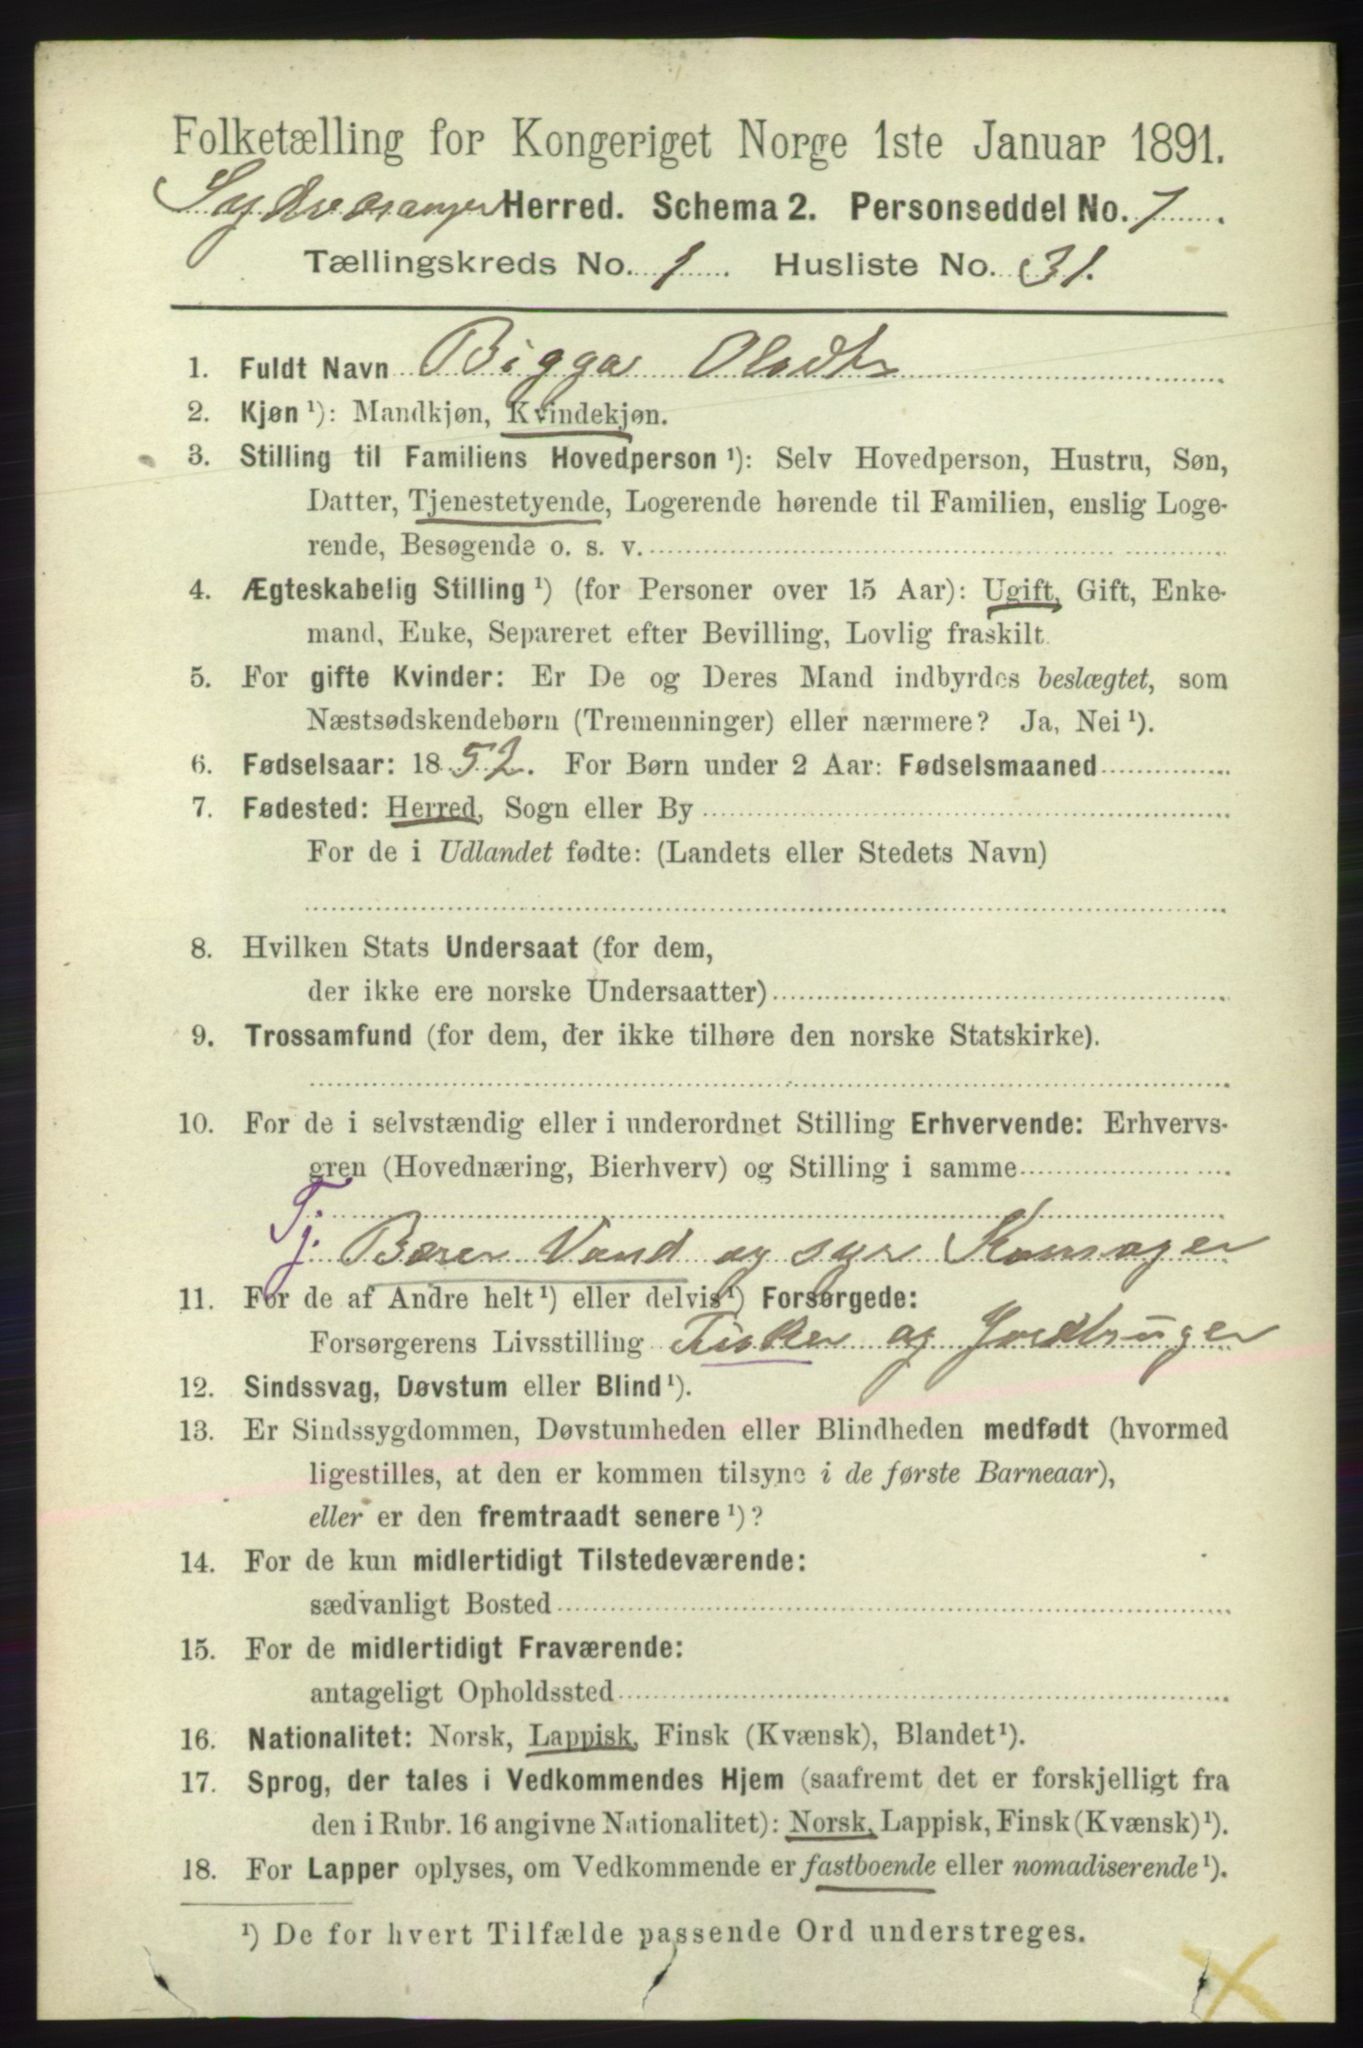 Folketælling for Kongeriget Norge 1ste Januar 1891.
Sydvaranger Herred. Schema 2. Personseddel No. 7
Tællingskreds No. 1 Husliste No. 31.
1. Fuldt Navn Bigga Olsdtr
2. Kjøn ¹): Mandkjøn, Kvindekjøn.
3. Stilling til Familiens Hovedperson ¹): Selv Hovedperson, Hustru, Søn,
Datter, Tjenestetyende, Logerende hørende til Familien, enslig Loge-
rende, Besøgende o. s. v.
4. Ægteskabelig Stilling ¹) (for Personer over 15 Aar): Ugift, Gift, Enke-
mand, Enke, Separeret efter Bevilling, Lovlig fraskilt.
5. For gifte Kvinder: Er De og Deres Mand indbyrdes beslægtet, som
Næstsødskendebørn (Tremenninger) eller nærmere? Ja, Nei ¹).
6. Fødselsaar: 1852. For Børn under 2 Aar: Fødselsmaaned
7. Fødested: Herred, Sogn eller By
For de i Udlandet fødte: (Landets eller Stedets Navn)
8. Hvilken Stats Undersaat (for dem,
der ikke ere norske Undersaatter)
9. Trossamfund (for dem, der ikke tilhøre den norske Statskirke).
10. For de i selvstændig eller i underordnet Stilling Erhvervende: Erhvervs-
gren (Hovednæring, Bierhverv) og Stilling i samme
Tj. Bærer Vand og syr Komager
11. For de af Andre helt ¹) eller delvis ¹) Forsørgede:
Forsørgerens Livsstilling Fisker og Jordbruger
12. Sindssvag, Døvstum eller Blind ¹).
13. Er Sindssygdommen, Døvstumheden eller Blindheden medfødt (hvormed
ligestilles, at den er kommen tilsyne i de første Barneaar),
eller er den fremtraadt senere ¹)?
14. For de kun midlertidigt Tilstedeværende:
sædvanligt Bosted
15. For de midlertidigt Fraværende:
antageligt Opholdssted
16. Nationalitet: Norsk, Lappisk, Finsk (Kvænsk), Blandet ¹).
17. Sprog, der tales i Vedkommendes Hjem (saafremt det er forskjelligt fra
den i Rubr. 16 angivne Nationalitet): Norsk, Lappisk, Finsk (Kvænsk) ¹).
18. For Lapper oplyses, om Vedkommende er fastboende eller nomadiserende ¹).
¹) De for hvert Tilfælde passende Ord understreges.